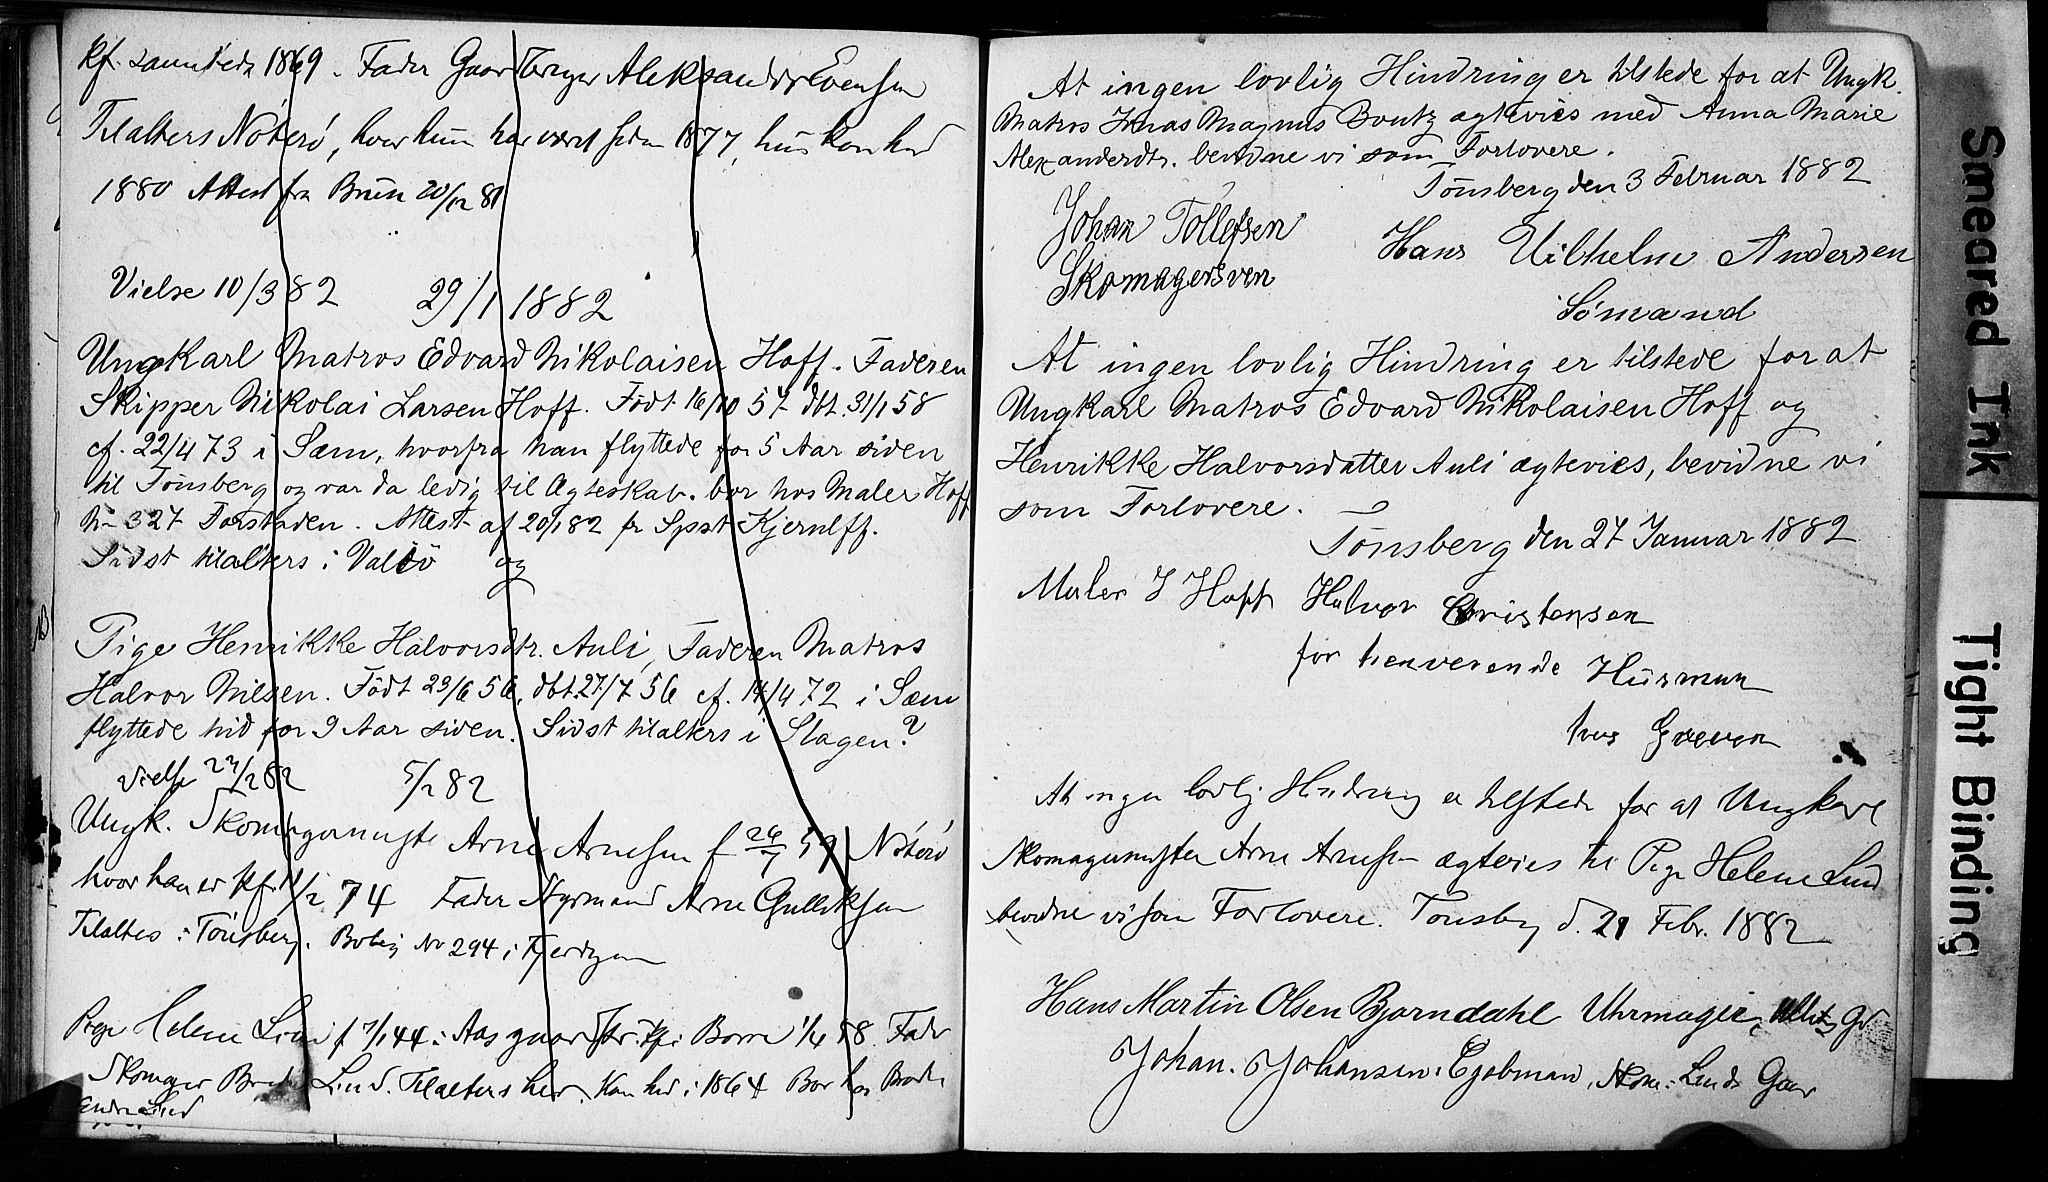 kf. sammesteds 1869. Fader Gaardbruger Aleksander Evensen
Tilalters Nøterø, hvor hun har været siden 1877, hun kom hid
1880 Attest fra Bruun 20/12 81
Vielse 10/3 82 29/1 1882
Ungkarl Matros Edvard Nikolaisen Hoff. Faderen
Skipper Nikolai Larsen Hoff. Født 16/10 57 dbt. 31/1 58
cf. 22/4 73 i Sæm, hvorfra han flyttede for 5 Aar siden
til Tønsberg og var da ledig til Ægteskab. bor hos Maler Hoff
No 327 Forstaden. Attest af 20/1 82 fr Spst Kjerulff.
Sidst tilalters i Valø og
Pige Henrikke Halvorsdtr. Auli, Faderen Matros
Halvor Nilsen. Født 23/6 56, dbt. 27/7 56 cf. 14/4 72 i Sæm
flyttede hid for 9 Aar siden. Sidst tilalters i Slagen?
Vielse 24/2 82 5/2 82
Ungk. Skomagermester Arne Arnesen f 26/7 59 Nøterø
hvor han er kf. 74 Fader Styrmand Arne Gulliksen
Tilalters i Tønsberg. Bolig No 294 i Fjerdingen
Pige Helene Lind f 7/1 44 i Aasgaardstr. kf i Borre 1/4 58. Fader
Skomager Lind. Tilalters her. Kom hid i 1864 Bor hos Broder
Lind
At ingen lovlig Hindring er tilstede for at Ungk.
Matros Jonas Magnus Bontz ægtevies med Anna Marie
Alexanderdtr. bevidne vi som Forlovere.
Tønsberg den 3 Februar 1882
Johan Tollefsen Hans Vilhelm Andersen
Skomagersven Sømand
At ingen lovlig Hindring er tilstede for at
Ungkarl Matros Edvard Nikolaisen Hoff og
Henrikke Halvorsdatter Auli ægtevies, bevidne vi
som Forlovere.
Tønsberg den 27 Januar 1882
Maler J Hoff Halvor Christensen
for henverende Husman
hos Greven
At ingen lovlig Hindring er tilstede for at Ungkarl
Skomagermester Arne Arnesen ægtevies til Pige Helene Lind
bevidne vi som Forlovere. Tønsberg d. 21 Febr. 1882
Hans Martin Olsen Bjørndahl Uhrmager
Johan. Johansen. Egebman, Skom. Linds Gaar
Smeared Ink
Tight Binding